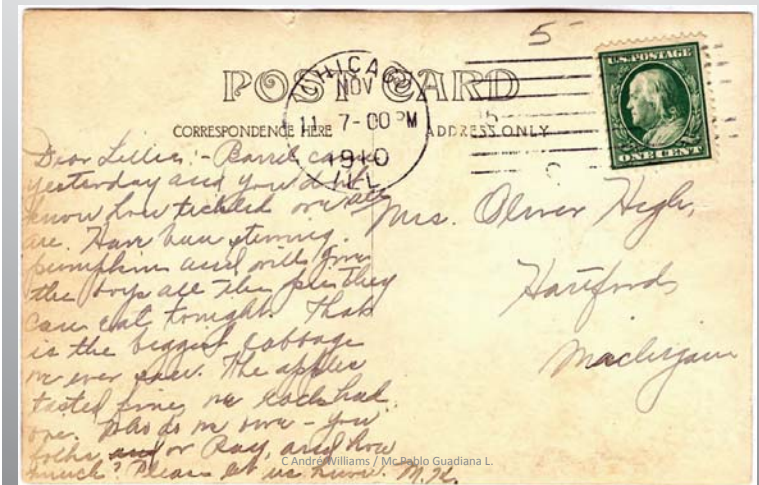 5
POST CARD
CHICAGO
NOV
11 7-00 PM
1910
ILL.
U.S. POSTAGE
ONE CENT
CORRESPONDENCE HERE
ADDRESS ONLY
Dear Lillie:- Barrel came
yesterday and you don't
know how tickled we all
are. Have been stewing
pumpkin and will give
the boys all the pie they
can eat tonight. That
is the biggest cabbage
we ever saw. The apples
tasted fine, we each had
one. Who do we owe - you
folks or Ray, and how
much? Please let us know. M.H.
Mrs. Oliver High,
Hartford,
Michigan
C André Williams / Mc Pablo Guadiana L.